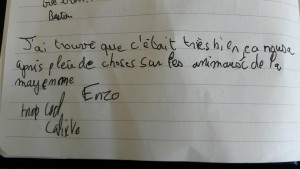 Bastien
J'ai trouvé que c'était très bien, ça nousa
apris plein de choses sur les animaux de la
mayenne
Enzo
trop cool
Calixte